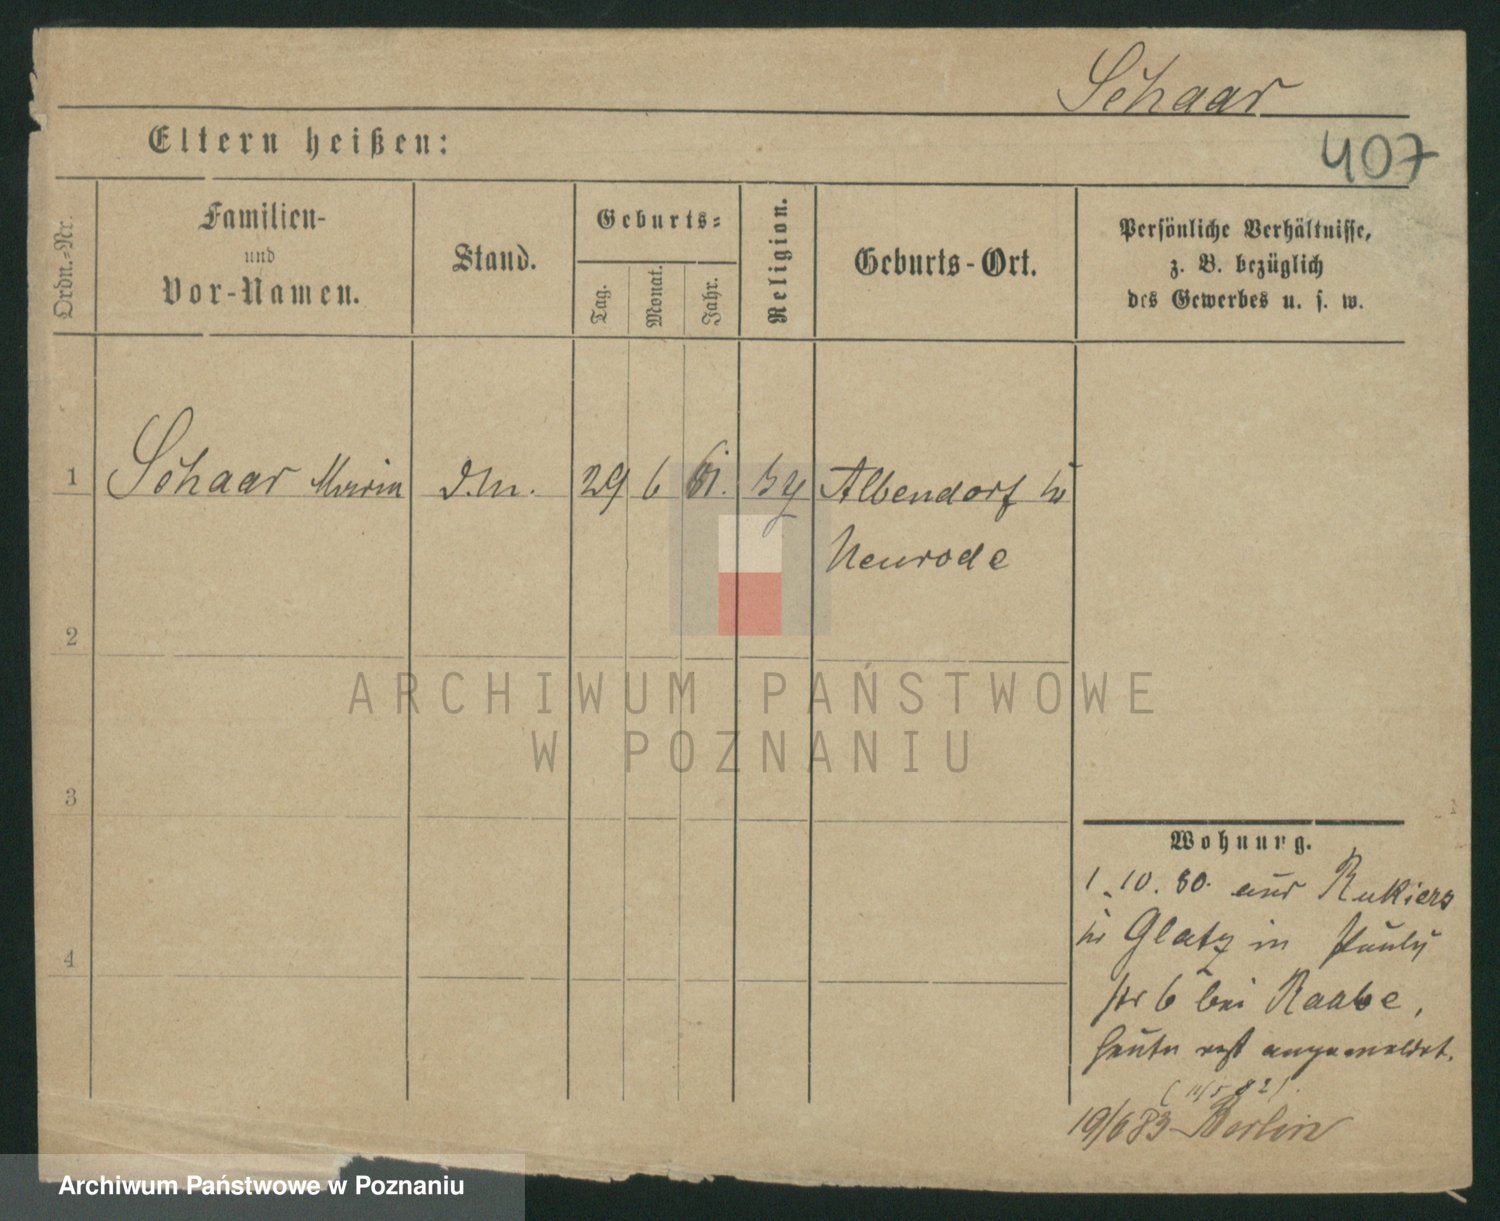 Schaar
407
Eltern heißen:
Ordn.-Nr.
Familien-
und
Vor-Namen.
Stand.
Geburts=
Tag.
Monat.
Jahr.
Religion.
Geburts-Ort.
Persönliche Verhältnisse,
z. B. bezüglich
des Gewerbes u. s. w.
1
Schaar Maria
D.M.
29
6
61.
Albendorf
Neurode
2
3
4
Wohnung.
1.10.80. aus Rukiers
Glatz in Pauly
str 6 bei Raabe,
heute erst angemeldet.
(11/5 82).
19/6 83 Berlin
ARCHIWUM PAŃSTWOWE
W POZNANIU
Archiwum Państwowe w Poznaniu